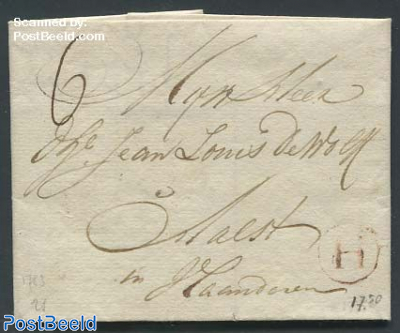 Scanned by
PostBeeld.com
6
Mijn Heer
Jean Louis De Wolff
Aelst
in Vlaenderen
H
1763
1750
PostBeeld